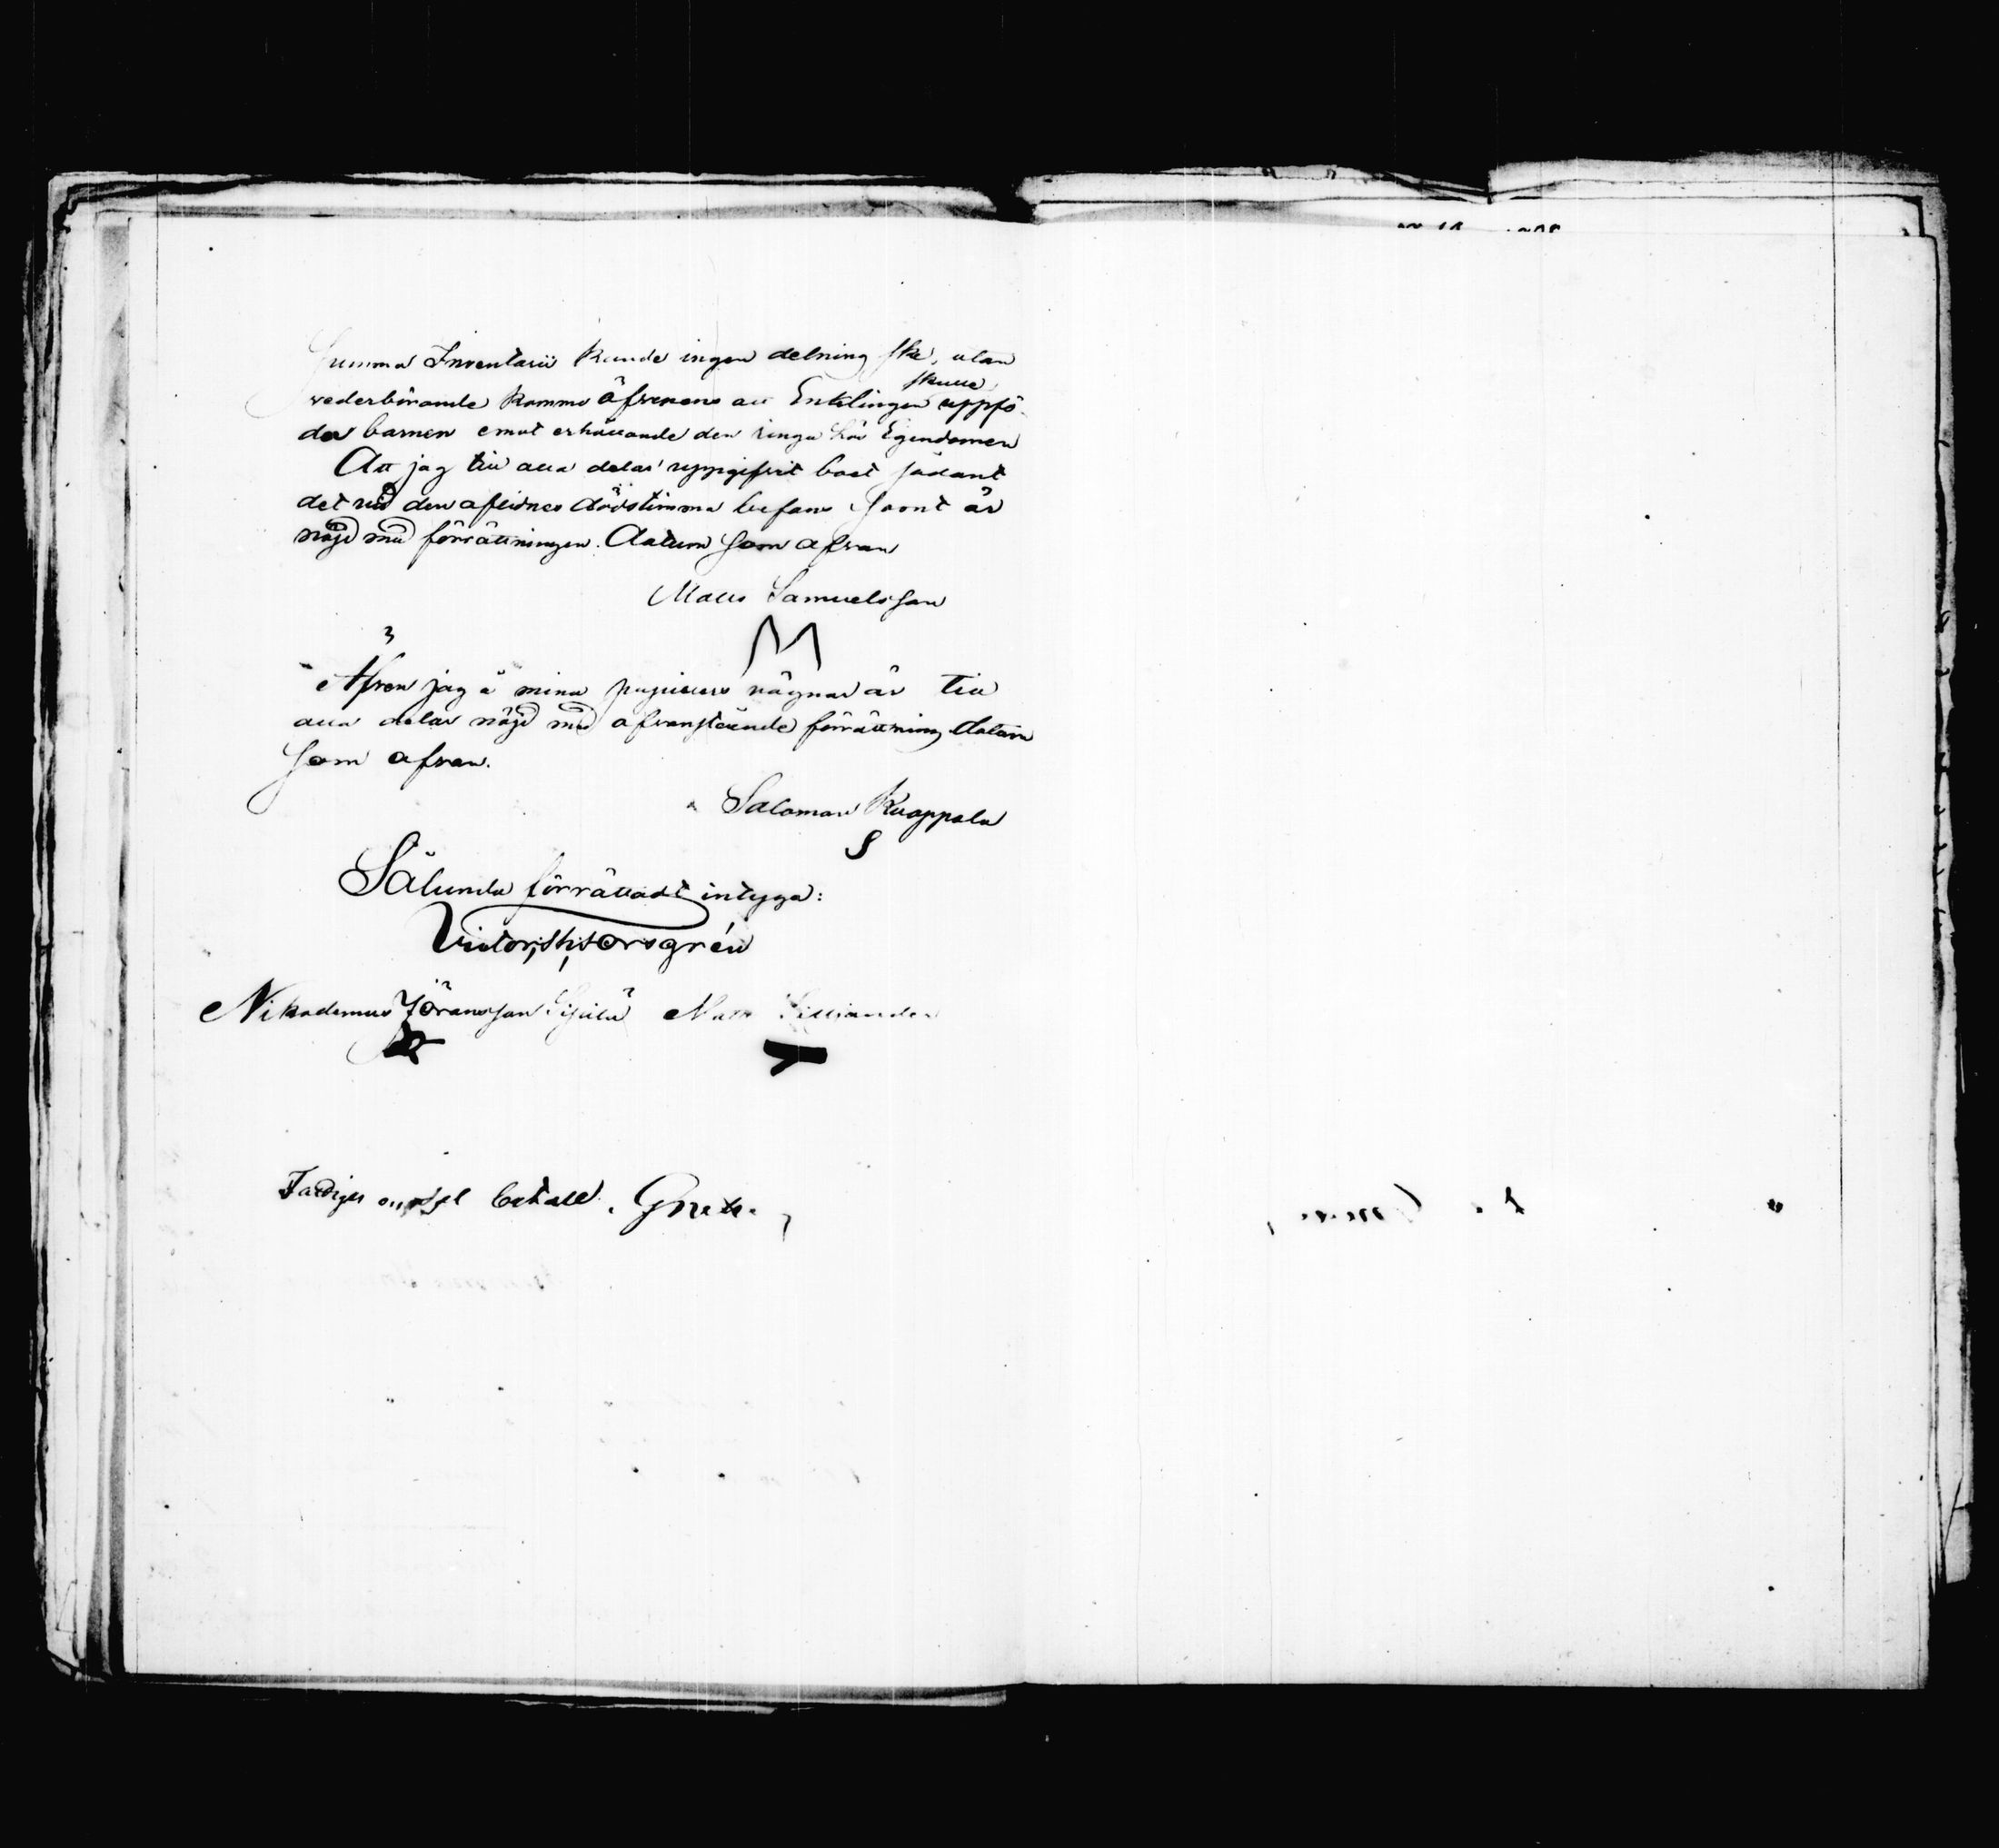 Summa Inventarii kunde ingen delning ske, utan
vederbörande kommo öfverens att Enklingen skulle uppfö-
da barnen emot erhållande den ringa lös Egendomen
Att jag till alla delar uppgifvit boet sådant
det vid den aflidnes dödstimma befans samt är
nöjd med förrättningen. Datum som ofvan
Matts Samuelsson
M
Äfven jag å mina pupillers vägnar är till
alla delar nöjd med ofvanstående förrättning Datum
som ofvan.
Salomon Knappala
S
Sålunda förrättadt intyga:
Victor Forsgrén
Nikodemus Jöransson Matts
betalt.